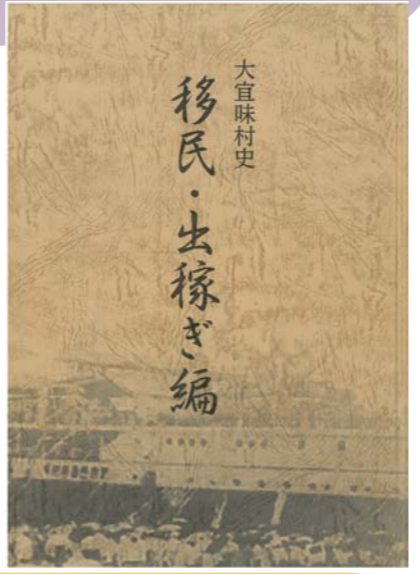 大宜味村史
移民・出稼ぎ編